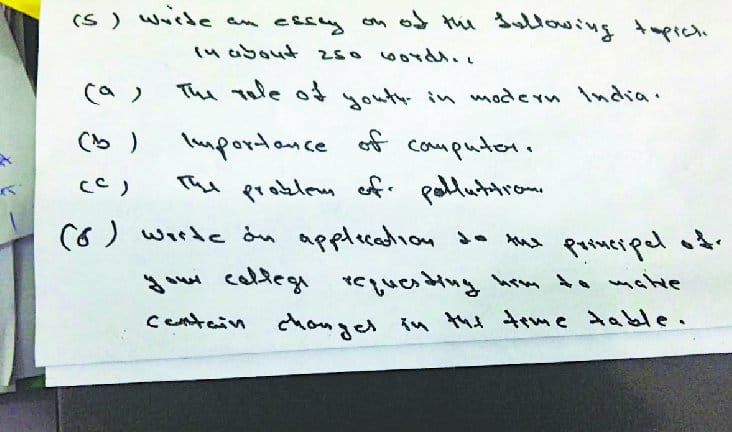 (5) Write an essay on of the following topics.
in about 250 words..
(a) The role of youth in modern India.
(b) Importance of computer.
(c) The problem of pollution
(6) Write an application to the principal of
your college requesting him to make
certain changes in the time table.